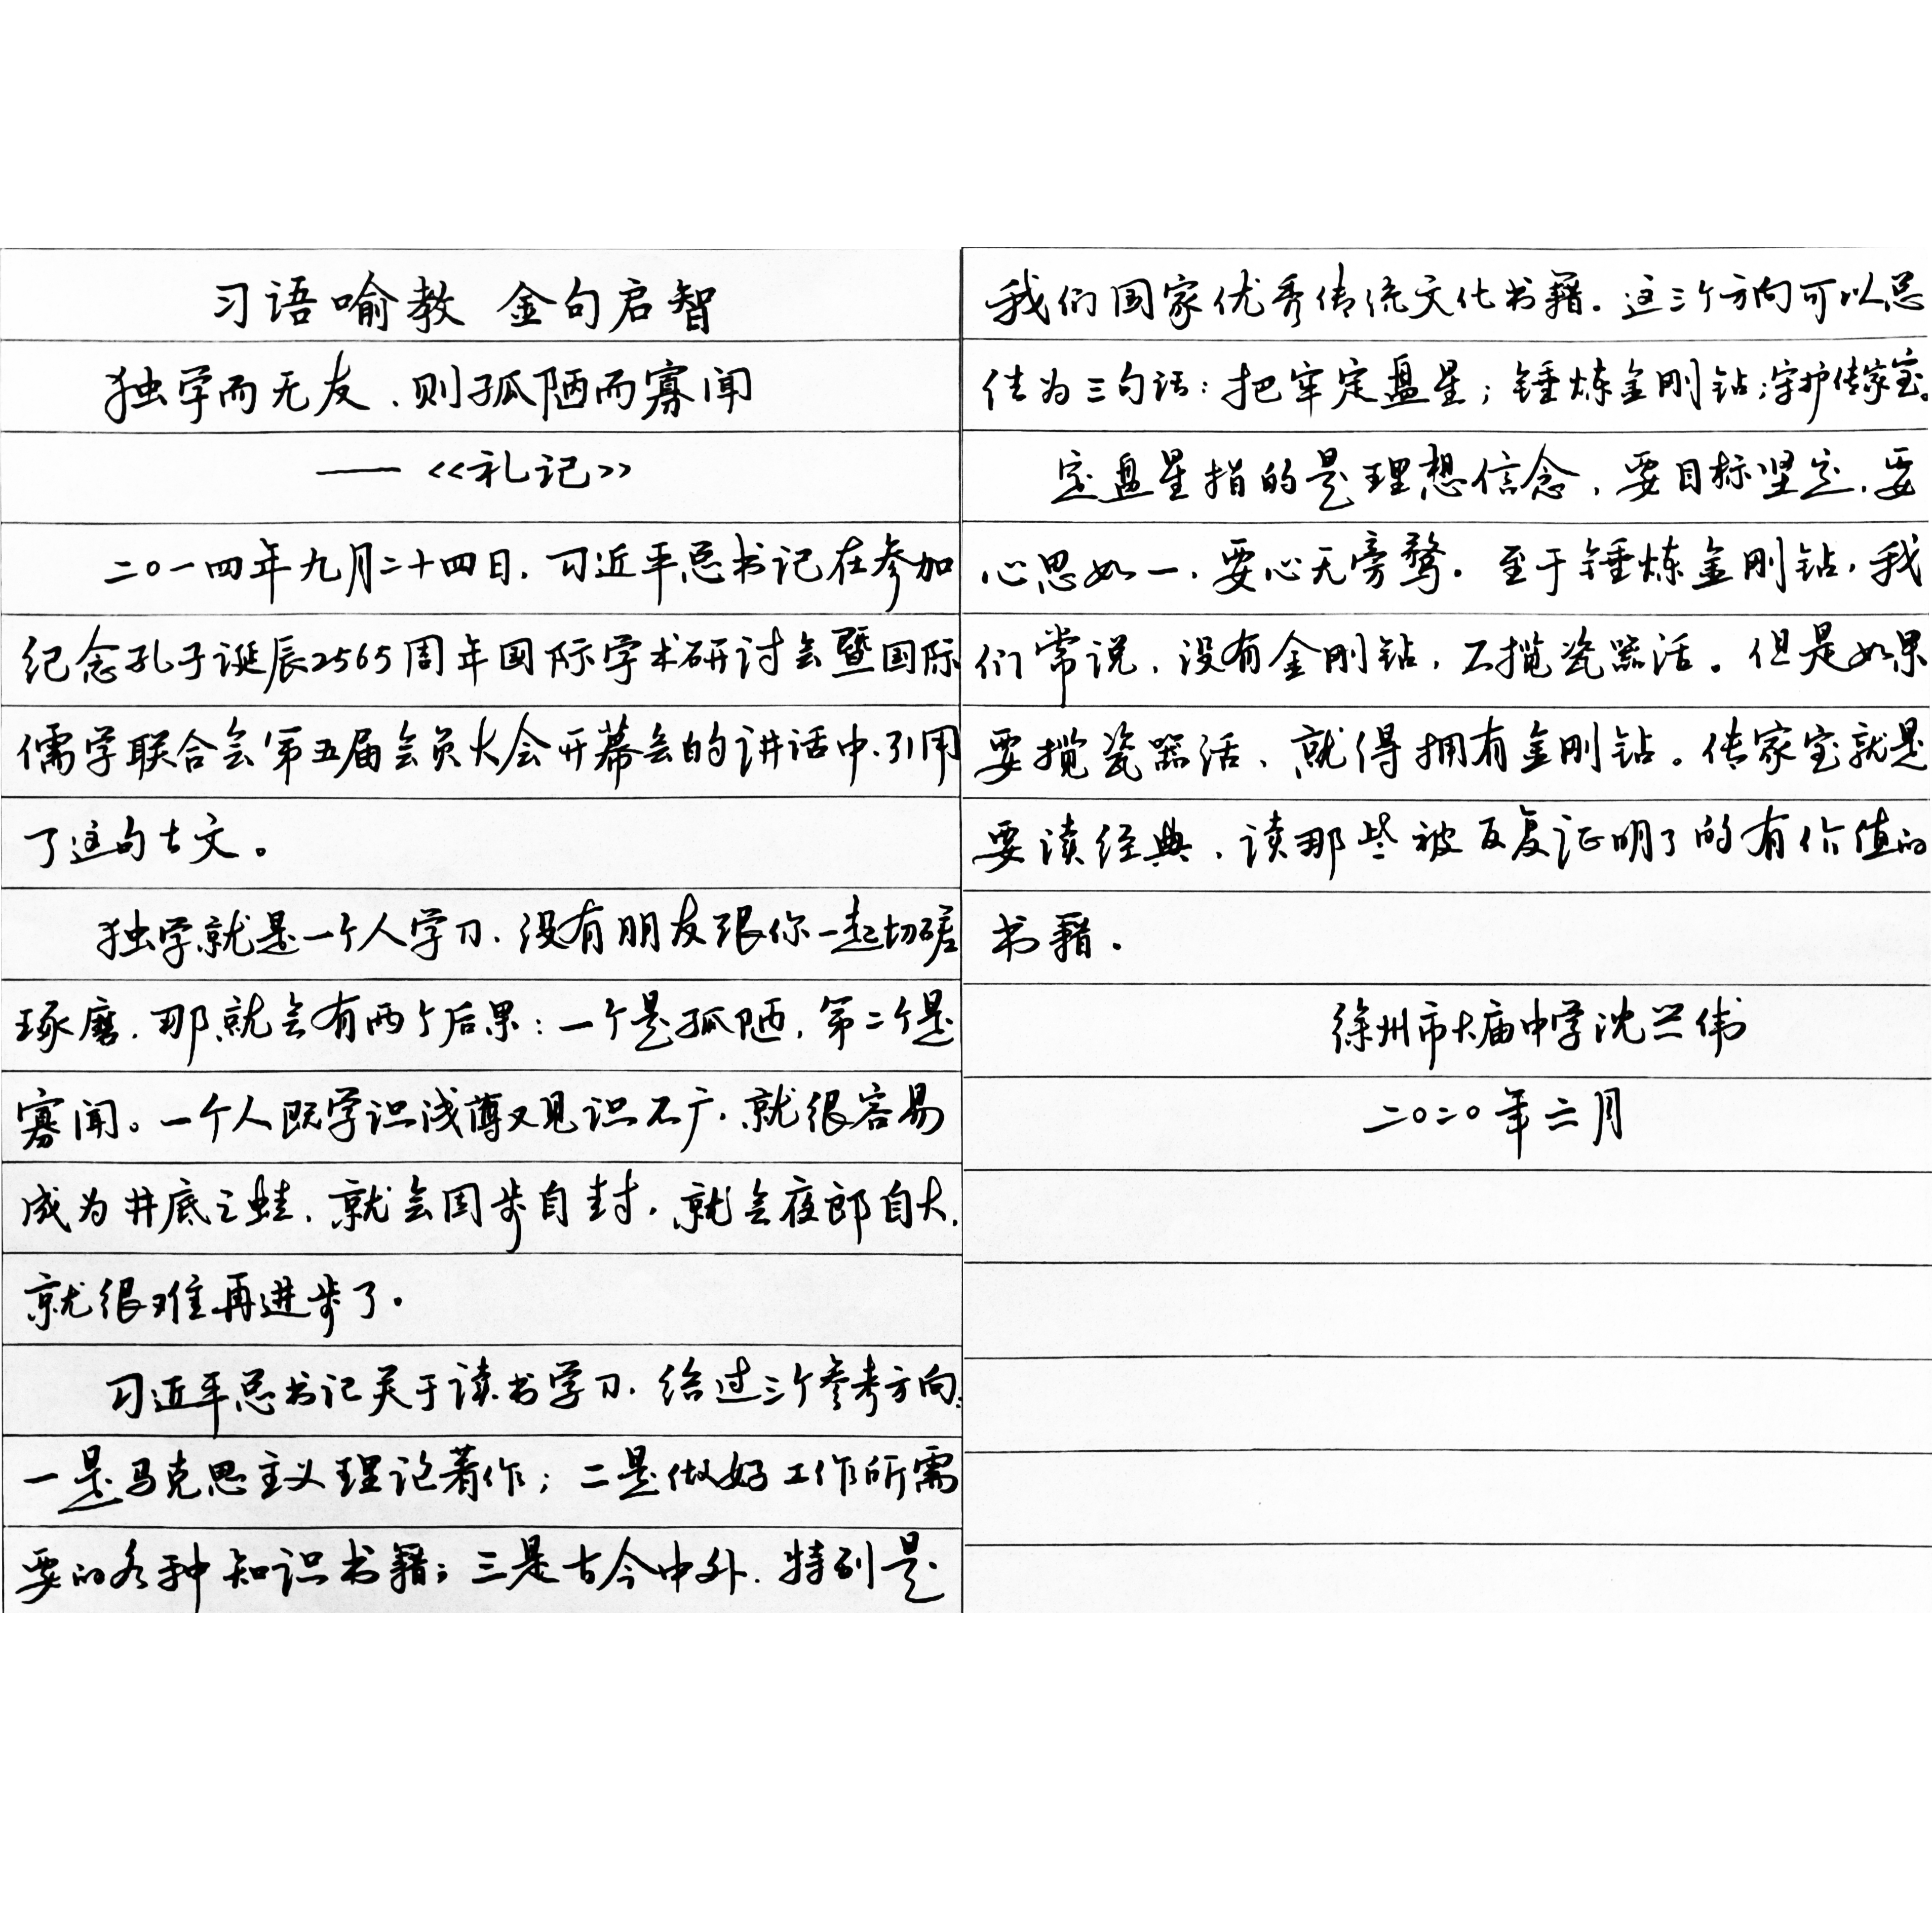 习语喻教 金句启智
独学而无友,则孤陋而寡闻
——《礼记》
二〇一四年九月二十四日,习近平总书记在参加
纪念孔子诞辰2565周年国际学术研讨会暨国际
儒学联合会第五届会员大会开幕会的讲话中,引用
了这句古文。
独学就是一个人学习,没有朋友跟你一起切磋
琢磨,那就会有两个后果:一个是孤陋,第二个是
寡闻。一个人既学识浅薄又见识不广,就很容易
成为井底之蛙,就会固步自封,就会夜郎自大,
就很难再进步了。
习近平总书记关于读书学习,给过三个参考方向:
一是马克思主义理论著作;二是做好工作所需
要的各种知识书籍;三是古今中外,特别是
我们国家优秀传统文化书籍。这三个方向可以总
结为三句话:把牢定盘星;锤炼金刚钻;守护传家宝。
定盘星指的是理想信念,要目标坚定,要
心思如一,要心无旁骛。至于锤炼金刚钻,我
们常说,没有金刚钻,不揽瓷器活。但是如果
要揽瓷器活,就得拥有金刚钻。传家宝就是
要读经典,读那些被反复证明了的有价值的
书籍。
徐州市大庙中学沈兰伟
二〇二〇年二月